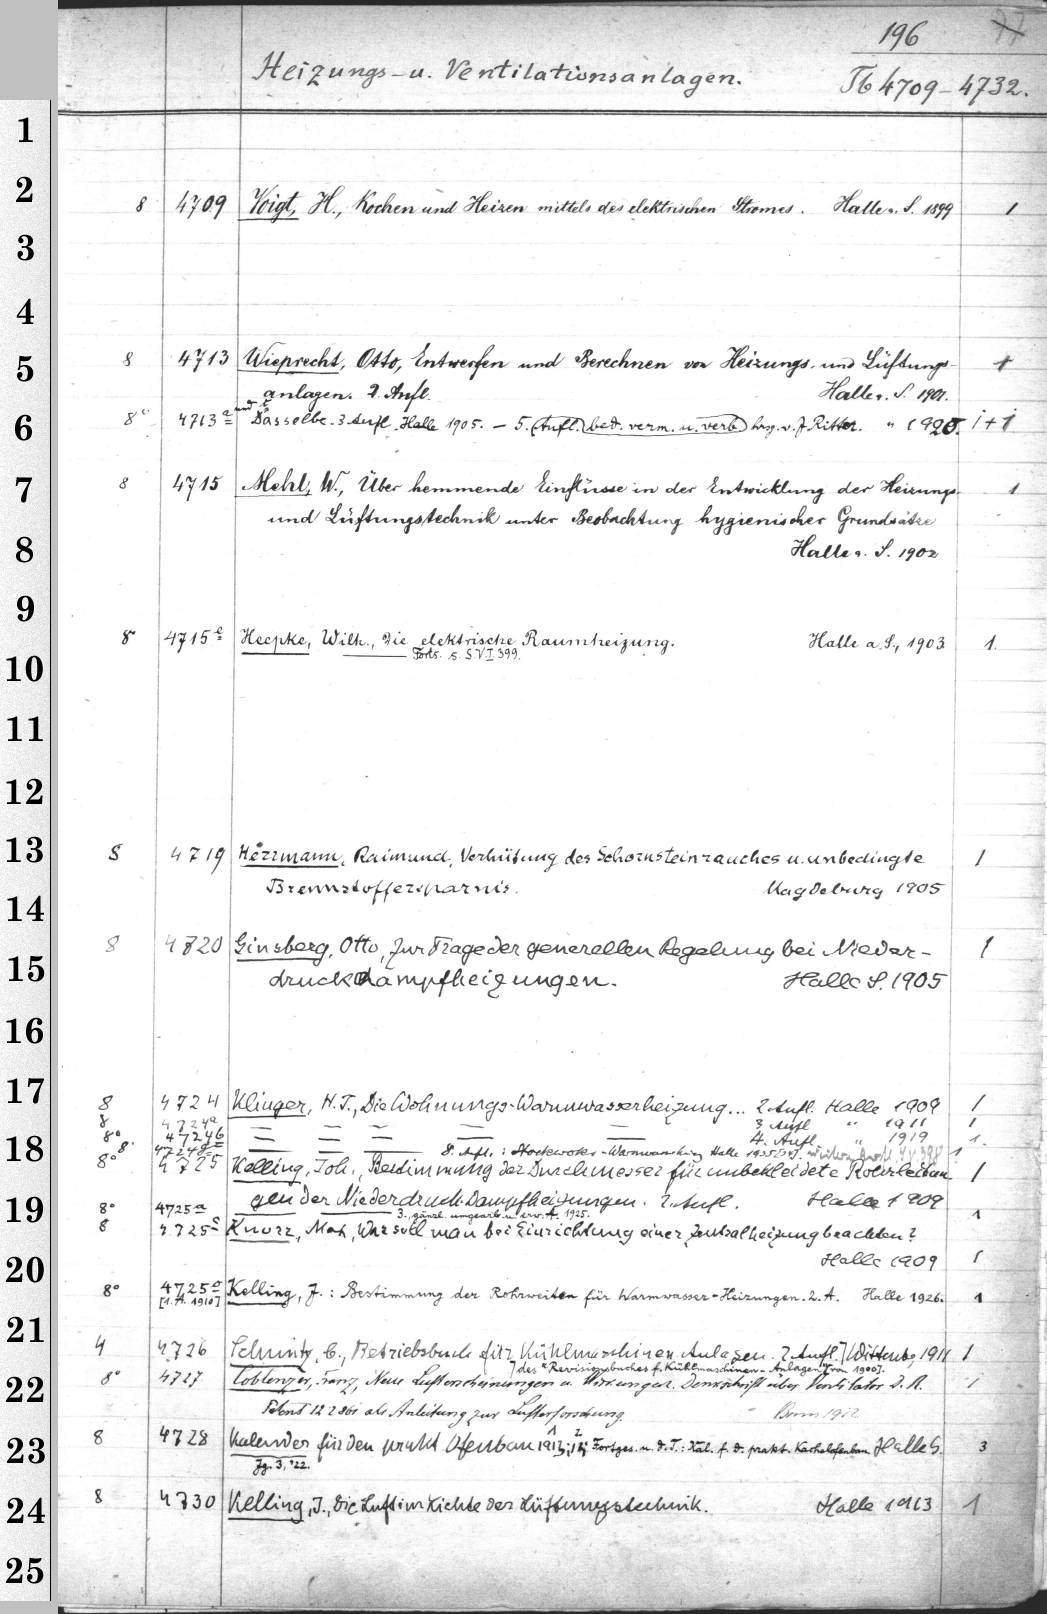 196 77
Heizungs- u. Ventilationsanlagen.
Tb 4709-4732.
1
2
8 4709 Voigt, H., Kochen und Heizen mittels des elektrischen Stromes. Halle a. S. 1899 1
3
4
5
8 4713 Wieprecht, Otto, Entwerfen und Berechnen von Heizungs- und Lüftungs- 1
anlagen. 2. Aufl. Halle a. S. 1901.
6
8° 4713a und b Dasselbe. 3. Aufl. Halle 1905. — 5. (Aufl.) (bed. verm. u. verb.) hrsg. v. J. Ritter. " 1920. 1+1
7
8 4715 Mehl, W., Über hemmende Einflüsse in der Entwicklung der Heizungs- 1
und Lüftungstechnik unter Beobachtung hygienischer Grundsätze
8
Halle a. S. 1902
9
8° 4715e Heepke, Wilh., Die elektrische Raumheizung. Halle a. S., 1903 1.
Forts. s. S.V.I 399.
10
11
12
13
8 4719 Herrmann, Raimund, Verhütung des Schornsteinrauches u. unbedingte 1
Brennstoffersparnis. Magdeburg 1905
14
8 4720 Ginsberg, Otto, Zur Frage der generellen Regelung bei Nieder- 1
15
druckdampfheizungen. Halle S. 1905
16
17
8 4724 Klinger, H. J., Die Wohnungs-Warmwasserheizung... 2 Aufl. Halle 1909 1
8 4724a — — — — 3 Aufl. " 1911 1
18
8° 4724b — — — — 4. Aufl. " 1919 1.
8. Aufl.: Stockwerks-Warmwasserheizg Halle 1 
8° 4725 Kelling, Joh., Bestimmung der Durchmesser für unbekleidete Rohrleitun- 1
19
gen der Niederdruck-Dampfheizungen. 2. Aufl. Halle 1909
8° 4725a — — 3., gänzl. umgearb. u. erw. A. 1925. 1
8 4725c Knorr, Max, Was soll man bei Einrichtung einer Zentralheizung beachten?
20
Halle 1909 1
8° 4725 [1. A. 1910] Kelling, J.: Bestimmung der Rohrweiten für Warmwasser-Heizungen. 2. A. Halle 1926. 1
21
4 4726 Schmitz, C., Betriebsbuch für Kühlmaschinen-Anlagen. 2 Aufl.] Wittenbg 1911 1
[des "Revisionsbuches f. Kühlmaschinen-Anlagen" von 1900].
22
8° 4727 Coblenzer, Franz, Neue Lufterscheinungen u. Wirkungen. Denkschrift über Ventilator D. R. 1
Patent 122861 als Anleitung zur Lufterforschung. Bonn 1912
23
8 4728 Kalender für den prakt. Ofenbau 1912; 13; 14; Fortges. u. d. T.: Kal. f. d. prakt. Kachelofenbau Halle S. 3
Jg. 3, '22.
24
8 4730 Kelling, J., Die Luft im Lichte der Lüftungstechnik. Halle 1913 1
25